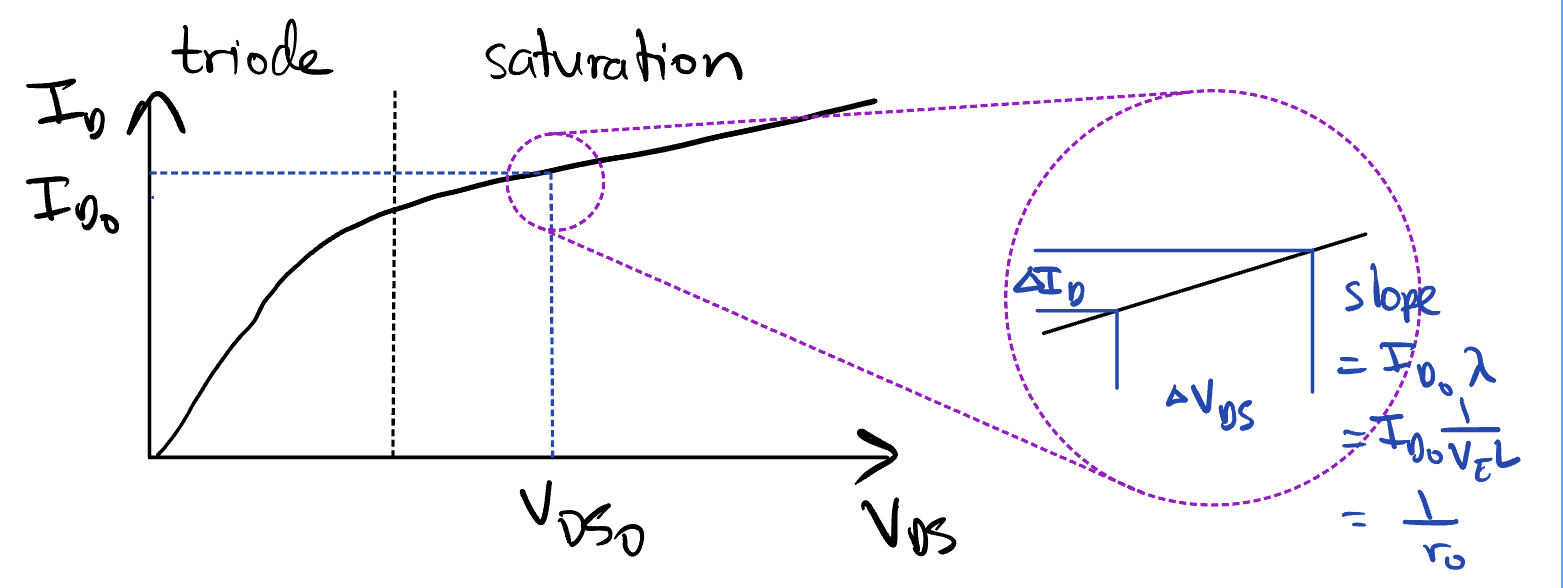 triode saturation
I_D
I_D₀
V_DS₀
V_DS
ΔI_D
ΔV_DS
slope
= I_D₀ λ
= I_D₀ 1/(V_E L)
= 1/r₀